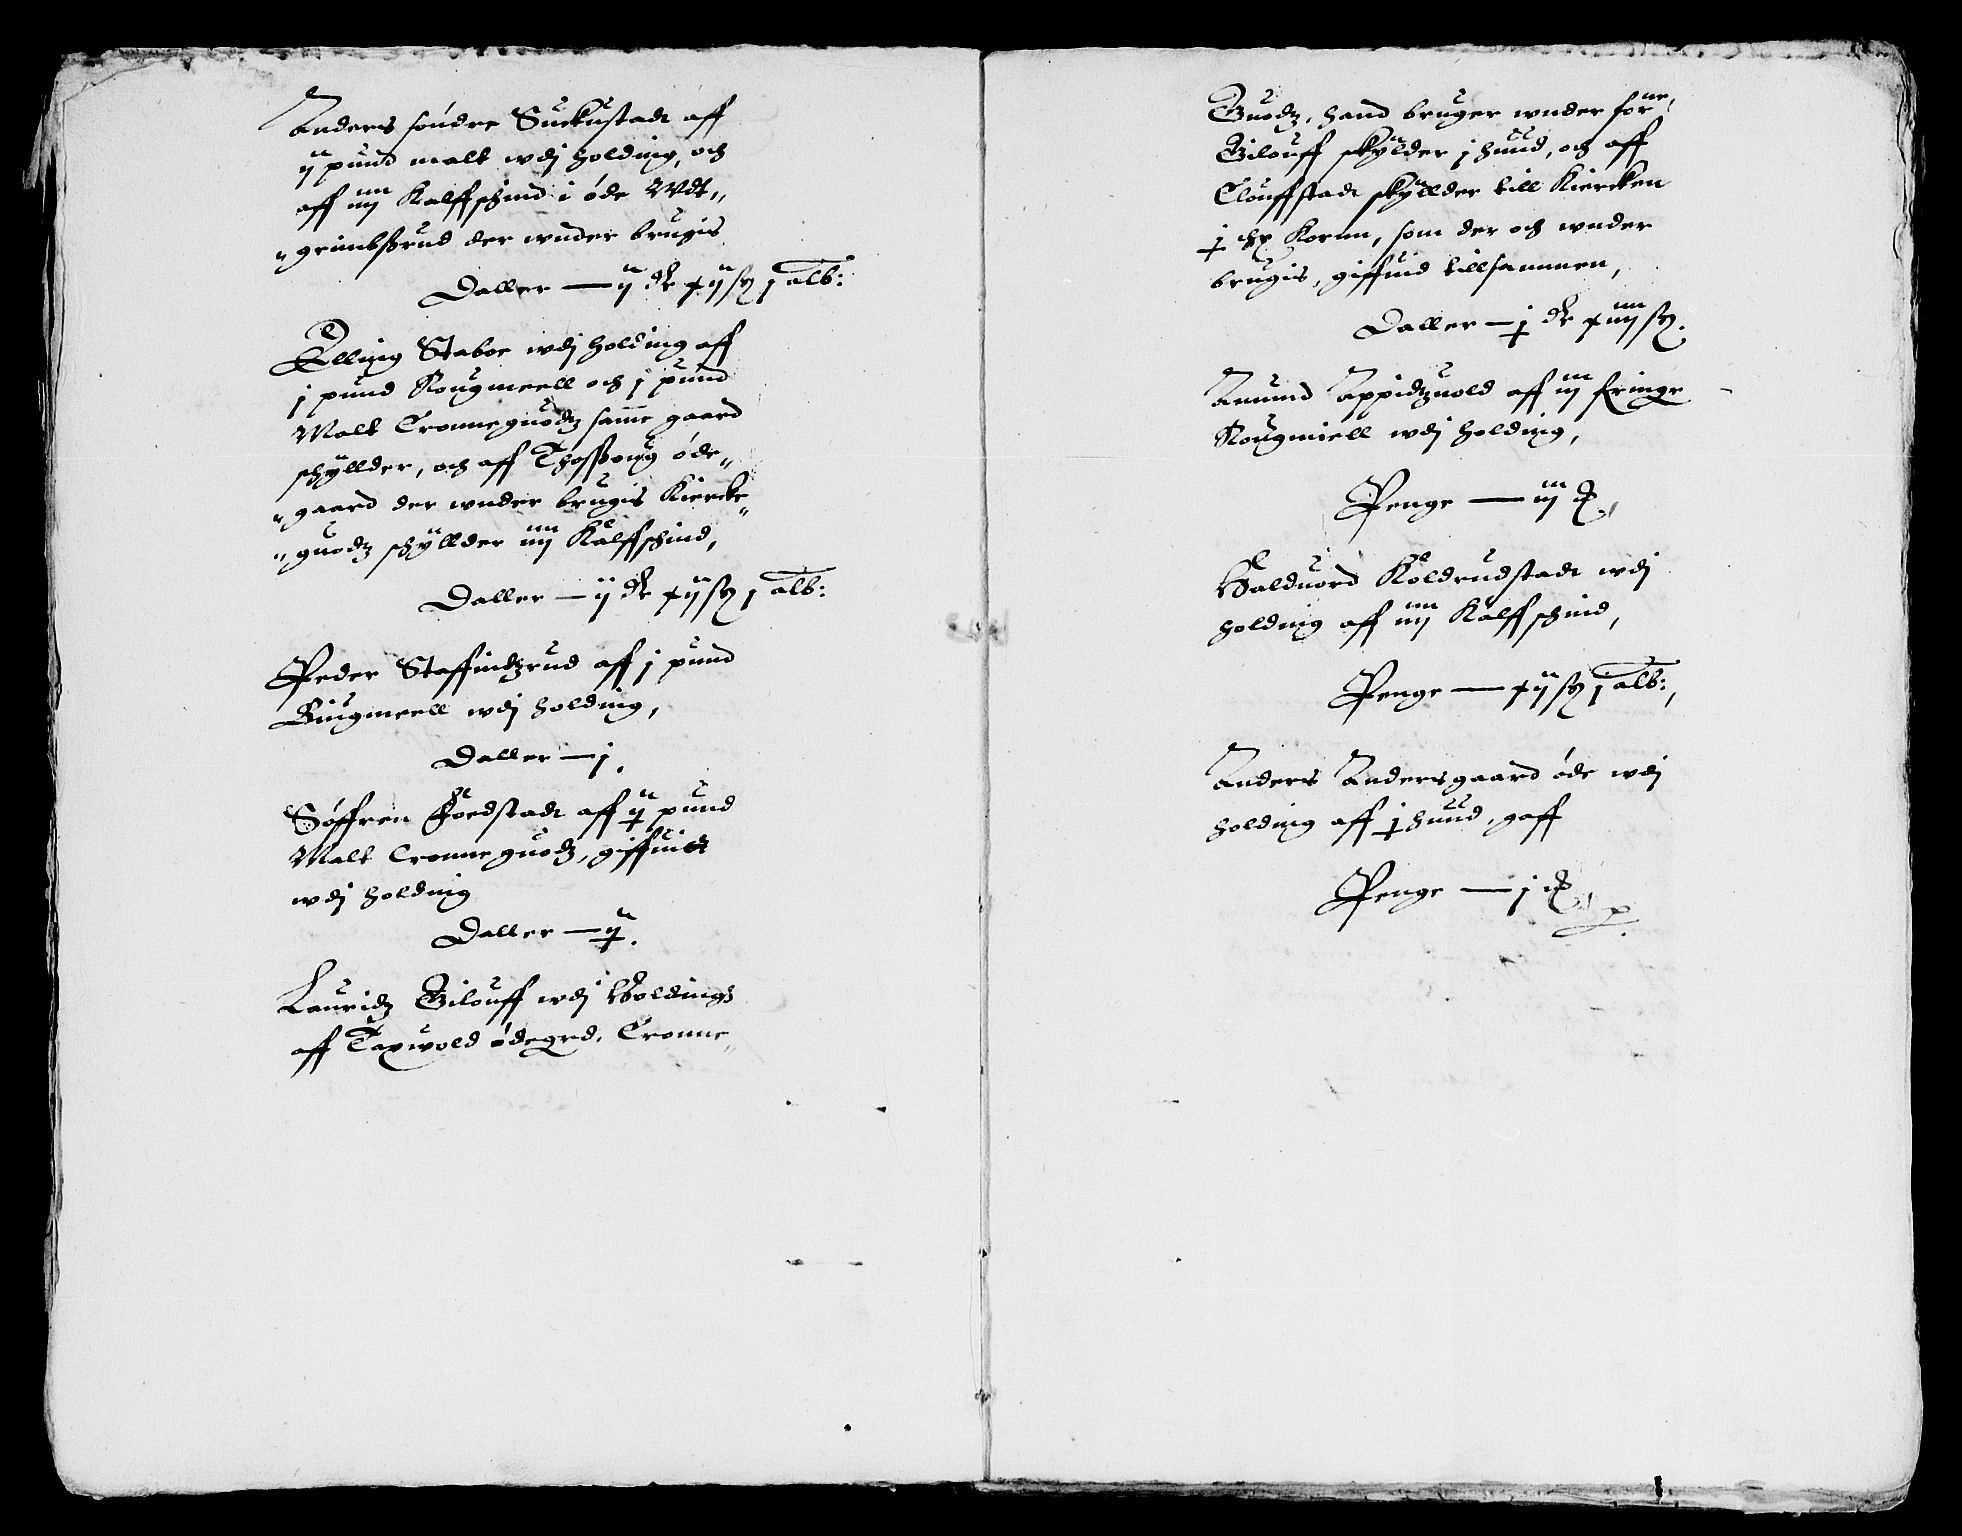 Anders söndre Suckustadt aff
ij pund malt wdj holding, och
aff iiij Kalffschind i öde Wdt„
„grimbsrud der wnder brugis
Daller — ij dr xij sz j alb:
Elling Staboe wdj holding aff
j pund Rougmeell och j pund
Malt Cronneguodtz samme gaard
schyllder, och aff Thosseng öde„
„gaard der wnder brugis Kiercke„
„guodtz schyllder iiij Kalffschind,
Daller — ij dr xij sz j alb:
Peder Staffindtzrud aff j pund
Biugmeell wdj holding,
Daller — j.
Söffren Foedstadt aff ij pund
Malt Cronne guodtz, giffuit
wdj holding
Daller — ij.
Lauridtz Gilouff wdj Holdingh
aff Taxwold ödegrd. Cronne„
Guodtz, hand bruger wnder forne,
Gilouff skylder j huud, och aff
Clouffstadt skyllder till Kiercken
j schp Kornn, som der och wnder
brugis, giffuid tillsammen,
Daller — j dr xiiij sz.
Amund Appidtzuold aff iij fringe
Rougmiell wdj holding,
Penge — iij ℔,
Halduord Koldrudstadt wdj
holding aff iiij Kalffschind,
Penge — xij sz j alb:,
Anders Andersgaard öde wdj
holding aff j huud, gaff
Penge — j ℔,